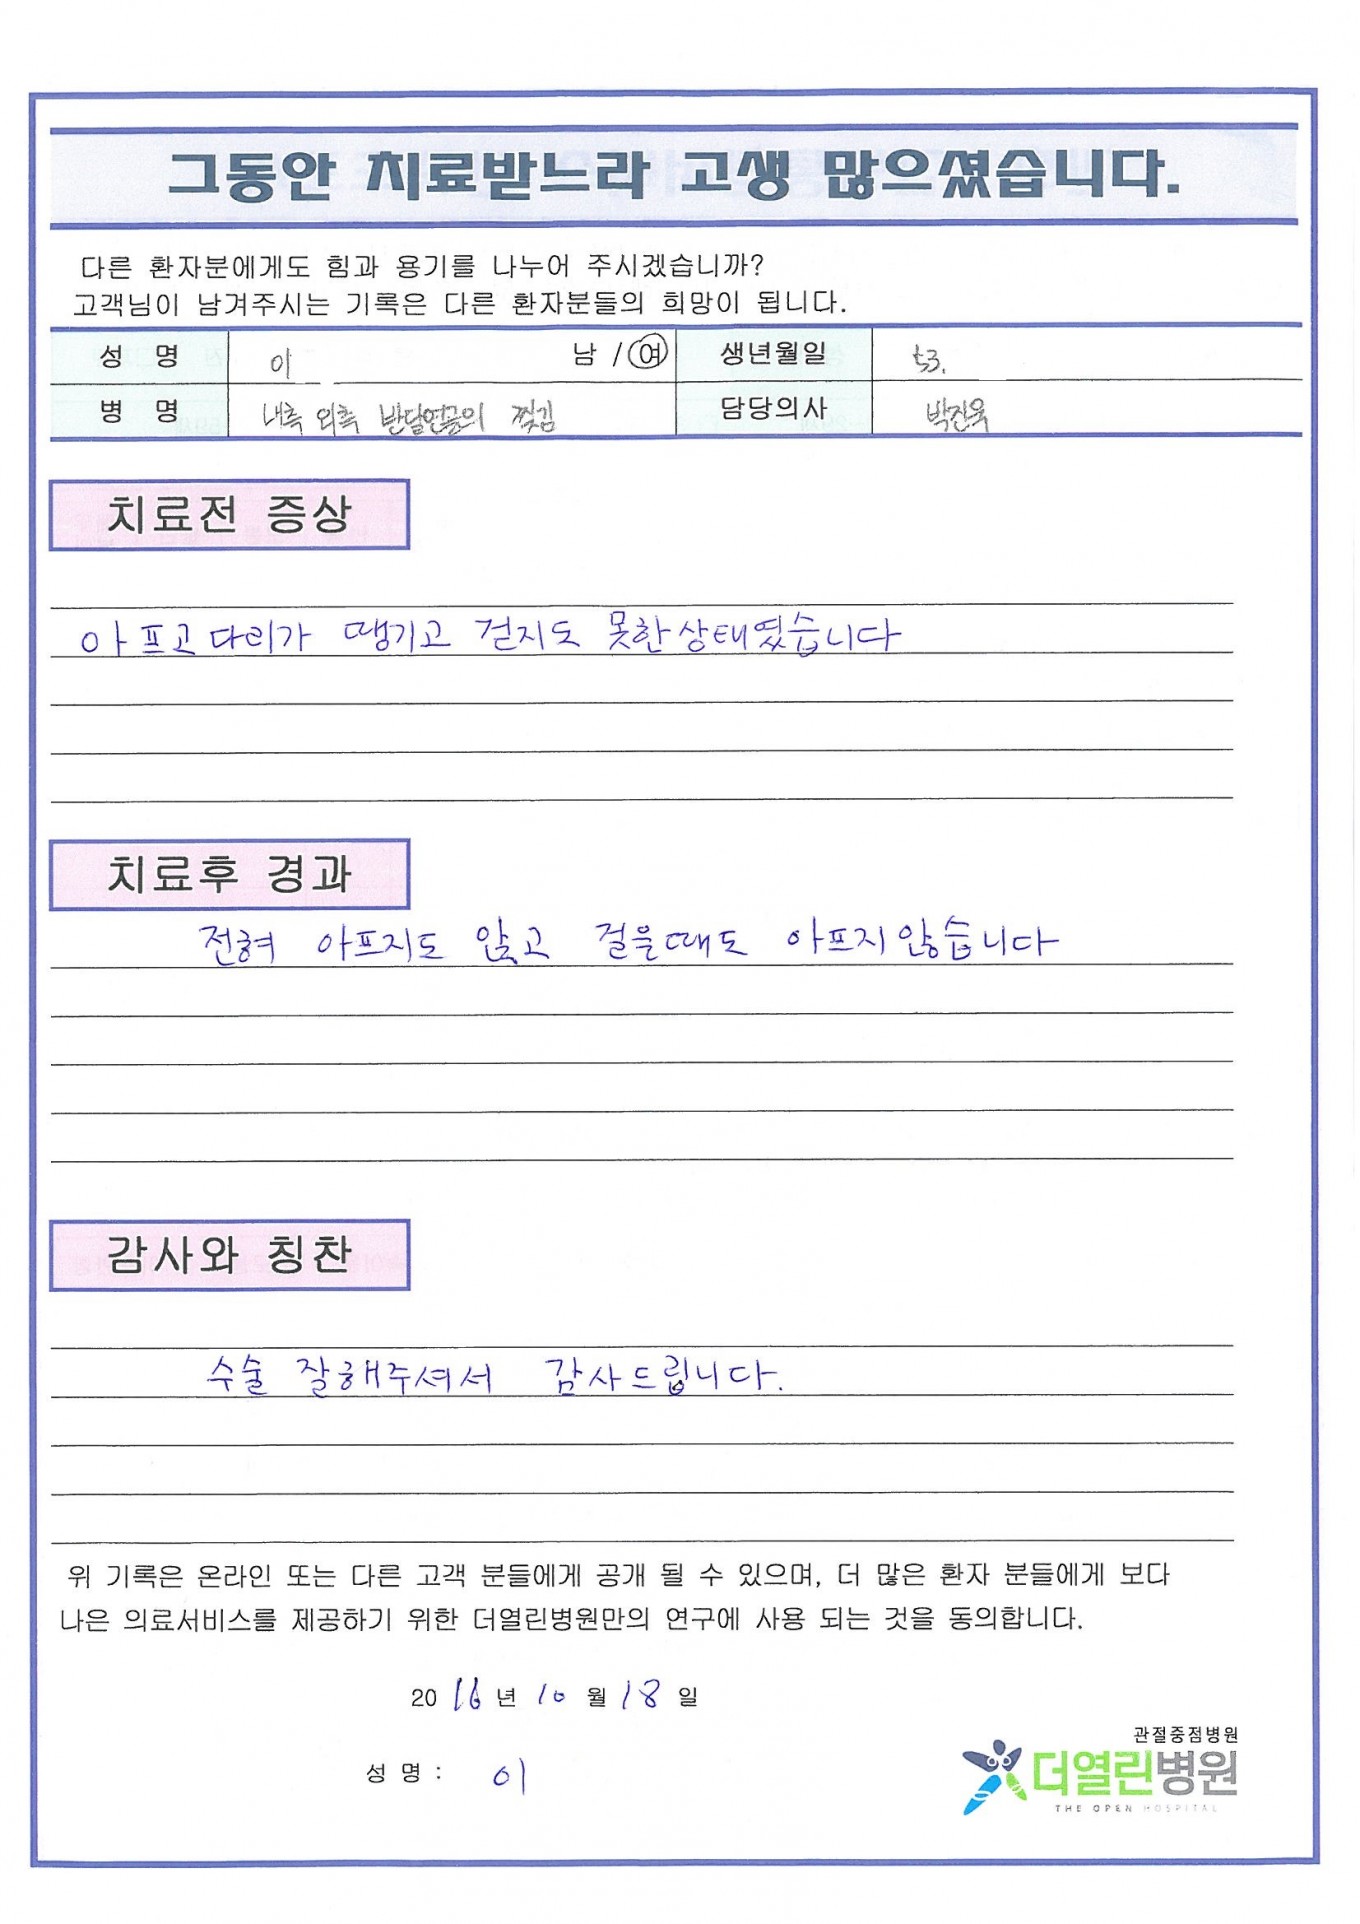 그동안 치료받느라 고생 많으셨습니다.
다른 환자분에게도 힘과 용기를 나누어 주시겠습니까?
고객님이 남겨주시는 기록은 다른 환자분들의 희망이 됩니다.
성 명 이 남 / 여 생년월일 53.
병 명 내측 외측 반달연골의 찢김 담당의사 박진욱
치료전 증상
아프고 다리가 땡기고 걷지도 못한상태였습니다
치료후 경과
전혀 아프지도 않고 걸을때도 아프지 않습니다
감사와 칭찬
수술 잘해주셔서 감사드립니다.
위 기록은 온라인 또는 다른 고객 분들에게 공개 될 수 있으며, 더 많은 환자 분들에게 보다
나은 의료서비스를 제공하기 위한 더열린병원만의 연구에 사용 되는 것을 동의합니다.
2016 년 10 월 18 일
성 명 : 이
관절중점병원
더열린병원
THE OPEN HOSPITAL